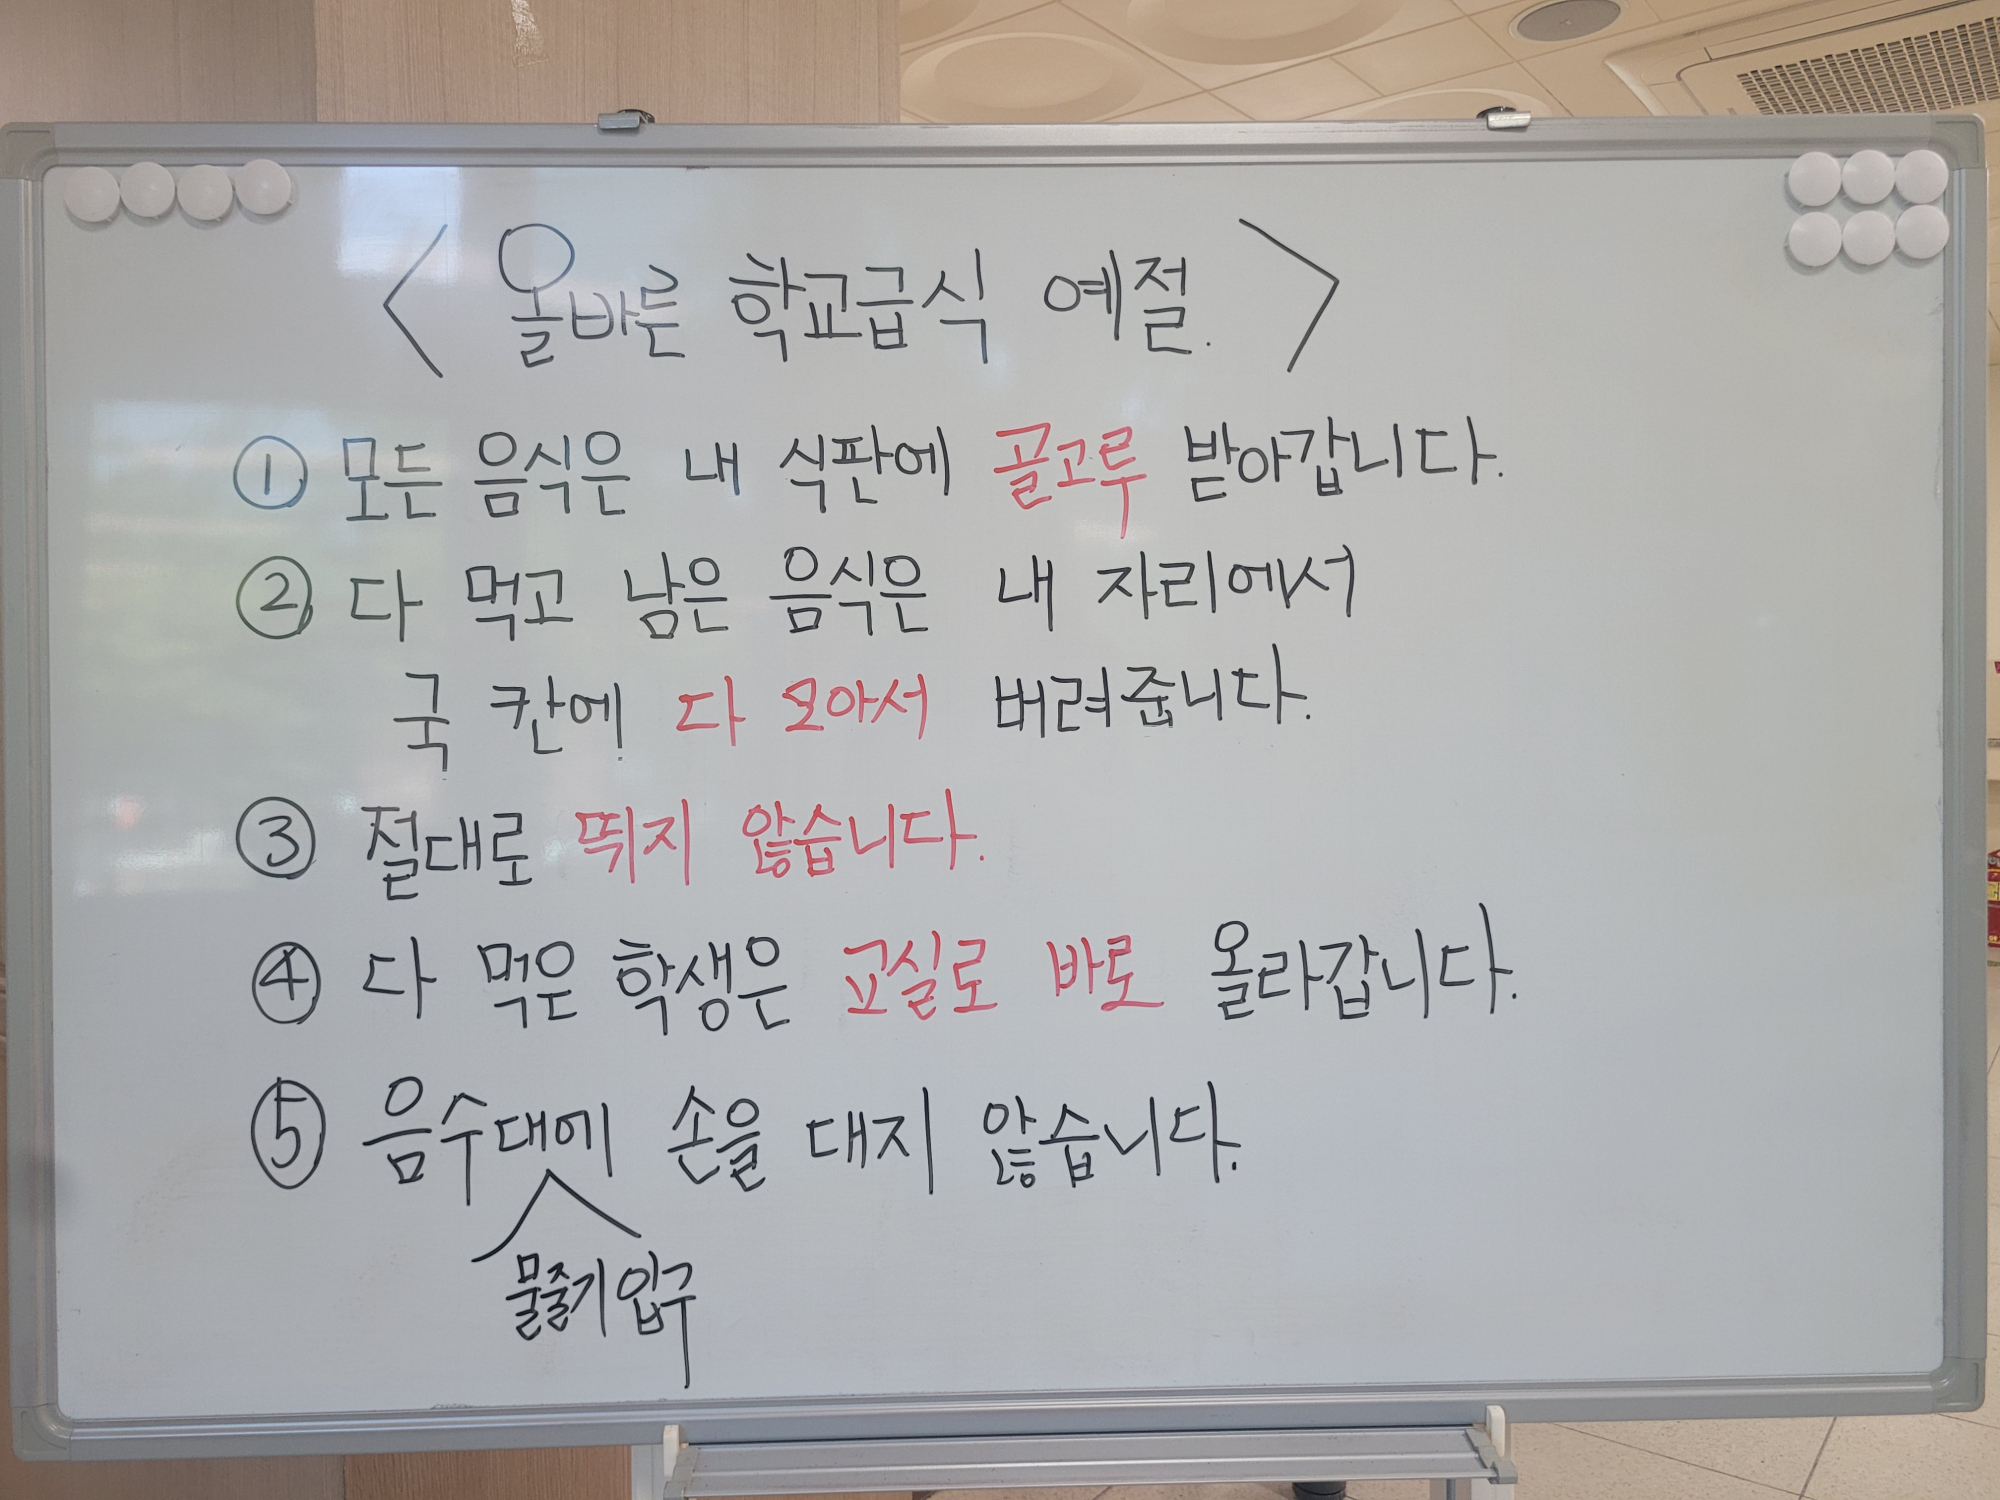 < 올바른 학교급식 예절. >
① 모든 음식은 내 식판에 골고루 받아갑니다.
② 다 먹고 남은 음식은 내 자리에서
국 칸에 다 모아서 버려줍니다.
③ 절대로 뛰지 않습니다.
④ 다 먹은 학생은 교실로 바로 올라갑니다.
⑤ 음수대에 손을 대지 않습니다.
물줄기 입구